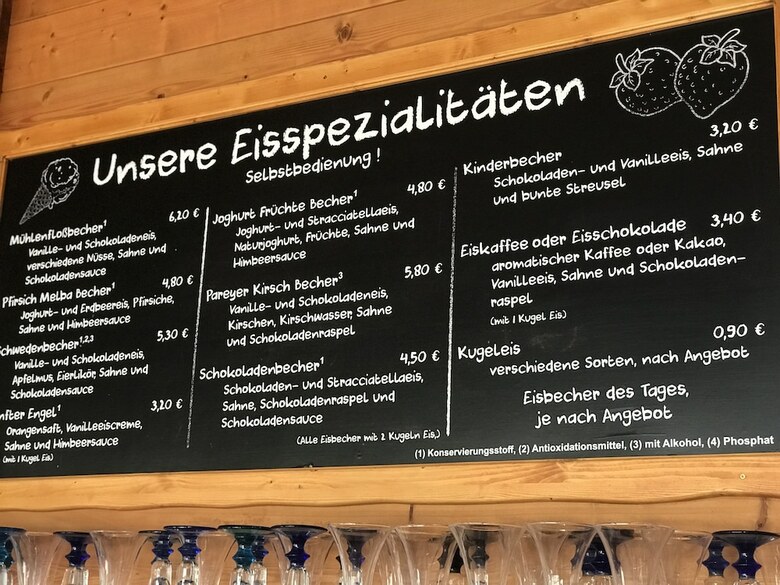 Unsere Eisspezialitäten
Selbstbedienung !
Mühlenfloßbecher¹ 6,20 €
Vanille- und Schokoladeneis,
verschiedene Nüsse, Sahne und
Schokoladensauce
Pfirsich Melba Becher¹ 4,80 €
Joghurt- und Erdbeereis, Pfirsiche,
Sahne und Himbeersauce
chwedenbecher¹,²,³ 5,30 €
Vanille- und Schokoladeneis,
Apfelmus, Eierlikör, Sahne und
Schokoladensauce
nfter Engel¹ 3,20 €
Orangensaft, Vanilleeiscreme,
Sahne und Himbeersauce
(mit 1 Kugel Eis)
Joghurt Früchte Becher¹ 4,80 €
Joghurt- und Stracciatellaeis,
Naturjoghurt, Früchte, Sahne und
Himbeersauce
Pareyer Kirsch Becher³ 5,80 €
Vanille- und Schokoladeneis,
Kirschen, Kirschwasser, Sahne
und Schokoladenraspel
Schokoladenbecher¹ 4,50 €
Schokoladen- und Stracciatellaeis,
Sahne, Schokoladenraspel und
Schokoladensauce
(Alle Eisbecher mit 2 Kugeln Eis,)
Kinderbecher 3,20 €
Schokoladen- und Vanilleeis, Sahne
und bunte Streusel
Eiskaffee oder Eisschokolade 3,40 €
aromatischer Kaffee oder Kakao,
Vanilleeis, Sahne und Schokoladen-
raspel
(mit 1 Kugel Eis)
Kugeleis 0,90 €
verschiedene Sorten, nach Angebot
Eisbecher des Tages,
je nach Angebot
(1) Konservierungsstoff, (2) Antioxidationsmittel, (3) mit Alkohol, (4) Phosphat